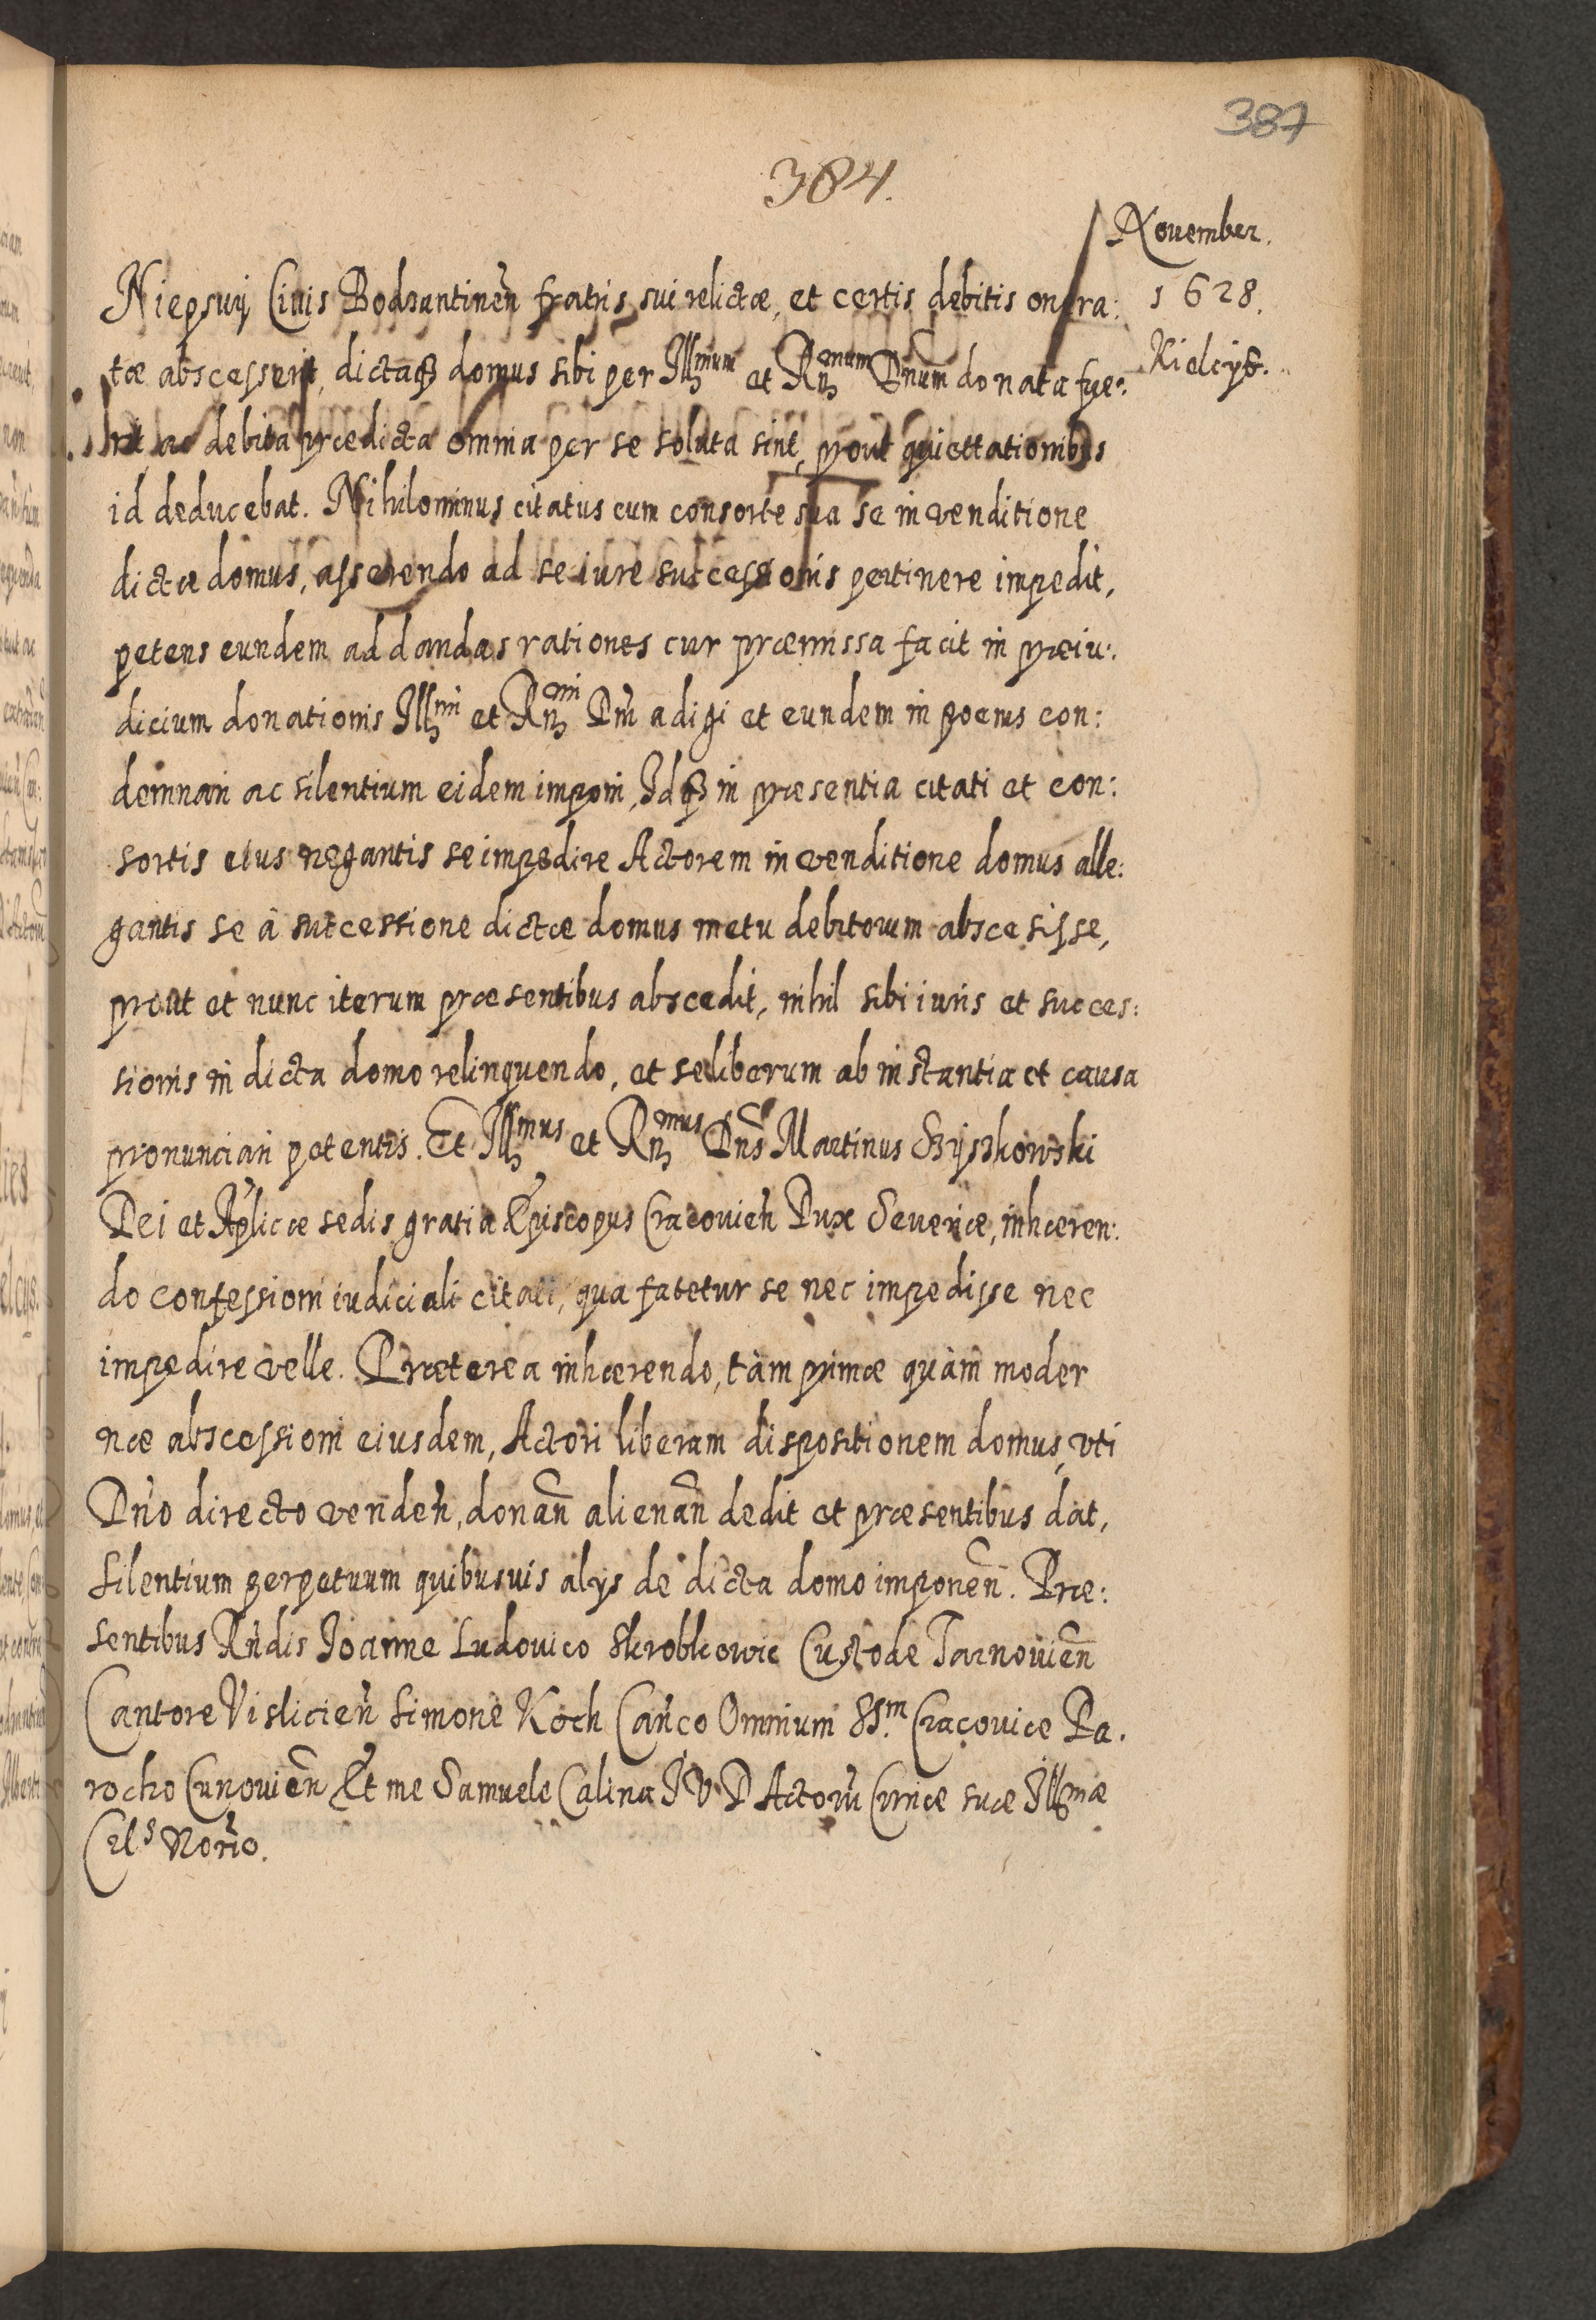 387
384.
November.
1628.
Kielcys.
Niepsuy Civis Bodzantinen̄ fratris sui relictæ, et certis debitis onera:
tæ abscesserit, dictaq3 domus sibi per Illmum et Rnmum Dnūm donata fue:
rit ac debita prædicta omnia per se soluta sint, prout quiettationibus
id deducebat. Nihilominus citatus cum consorte sua se in venditione
dictæ domus, asserendo ad se iure successionis pertinere impedit,
petens eundem ad dandas rationes cur præmissa facit in præiu:
dicium donationis Illmi et Rnmi Dni adigi et eundem in poenis con:
demnari ac silentium eidem imponi, Idq3 in præsentia citati et con:
sortis eius negantis se impedire Actorem in venditione domus alle:
gantis se â successione dictæ domus metu debitorum abscesisse,
prout et nunc iterum præsentibus abscedit, nihil sibi iuris et succes:
sionis in dicta domo relinquendo, et se liberum ab instantia et causa
pronunciari petentis. Et Illmus et Rnmus Dns Martinus Szyszkowski
Dei et Aplicæ sedis gratia Episcopus Cracovien̄ Dux Severiæ, inhæren:
do confessioni iudiciali citati, qua fatetur se nec impedisse nec
impedire velle. Præterea inhærendo, tàm primæ quàm moder
næ abscessioni eiusdem, Actori liberam dispositionem domus, vti
Dn̄o directo venden̄, donan̄ alienan̄ dedit et præsentibus dat,
silentium perpetuum quibusuis alys de dicta domo imponen̄. Præ:
sentibus Rn̄dis Joanne Ludovico Skroblkowic Custode Tarnovien̄
Cantore Vislicien̄ Simone Koch Can̄co Omnium SSm Cracoviæ Pa.
rocho Cunovien̄ Et me Samuele Calina I V D Actorū Curiæ suæ Illmæ
Cels Norio.